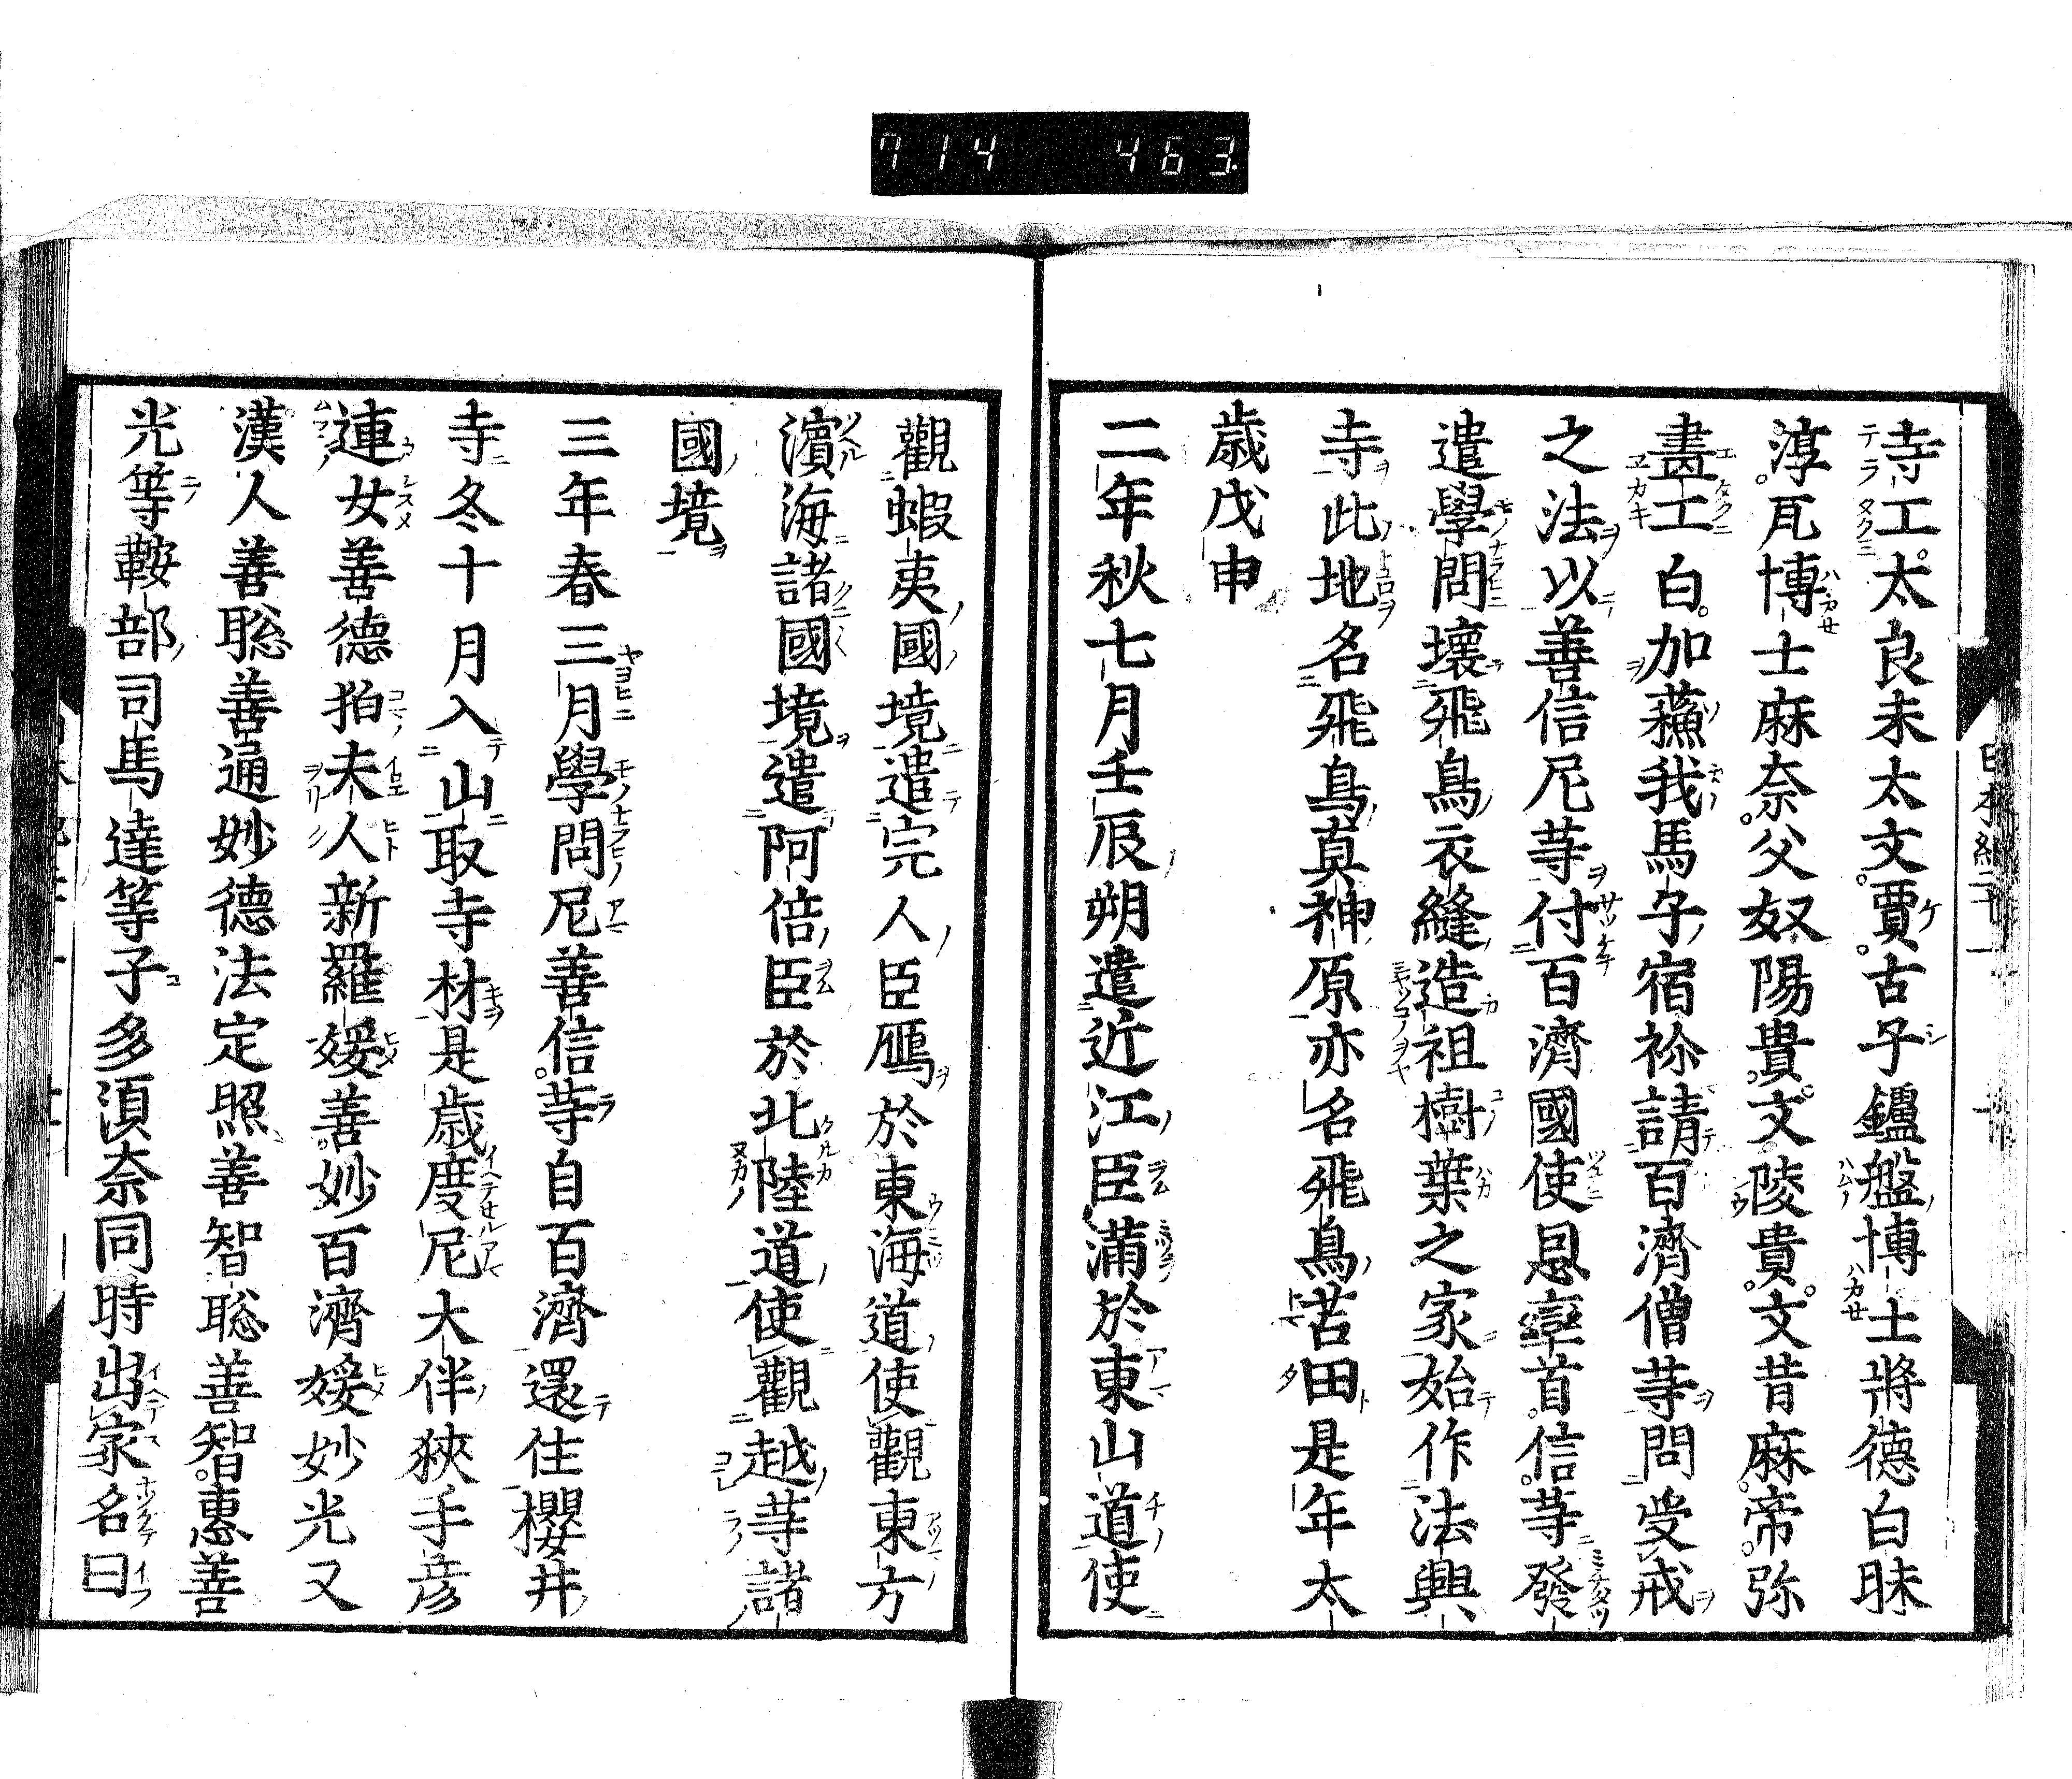 714 463
寺工太良未太文賈古子鑪盤博士將德白昧
淳瓦博士麻奈父奴陽貴文陵貴文昔麻帝弥
畫工白加蘓我馬子宿祢請百濟僧䓁問受戒
之法以善信尼䓁付百濟國使恩率首信䓁發
遣學問壞飛鳥衣縫造祖樹葉之家始作法興
寺此地名飛鳥真神原亦名飛鳥苫田是年太
歳戊申
二年秋七月壬辰朔遣近江臣蒲於東山道使
觀蝦夷國境遣宍人臣鴈於東海道使觀東方
濱海諸國境遣阿倍臣於北陸道使觀越䓁諸
國境
三年春三月學問尼善信䓁自百濟還住櫻井
寺冬十月入山取寺材是歳度尼大伴狹手彦
連女善德狛夫人新羅媛善妙百濟媛妙光又
漢人善聡善通妙德法定照善智聡善智惠善
光等鞍部司馬達等子多湏奈同時出家名曰